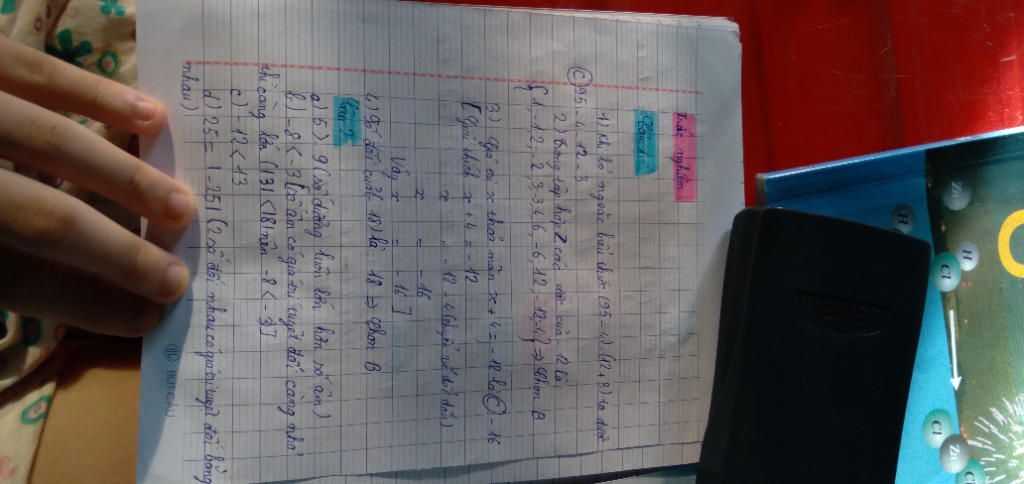 Trắc nghiệm
Câu 1
1) Khi bỏ ngoặc biểu thức (95 - 4) - (12 + 3) ta được
C 95 - 4 - 12 - 3
2) Trong tập hợp Z các ước của -12 là
{1, -1, 2, -2, 3, -3, 4, 6, -6, 12, -12, -4} => Chọn B
3) x thoả mãn x + 4 = -12 là C - 16
[Giải thích x + 4 = -12
x = -12 - 4 (chuyển vế đổi dấu)
x = -16
Vậy x = -16]
4) Số đối của (-18) là: 18 => Chọn B
Câu 2
a) 5 > - 9 (số dương luôn lớn hơn số âm)
b) -8 < -3 [số âm có giá trị tuyệt đối càng nhỏ
thì càng lớn (|3| < |8| nên -8 < -3)]
c) -12 < 13
d) 25 = |-25| (2 số đối nhau có giá trị tuyệt đối bằng
nhau)
Zn
H
H
Cl
Cl
Zn
Cl